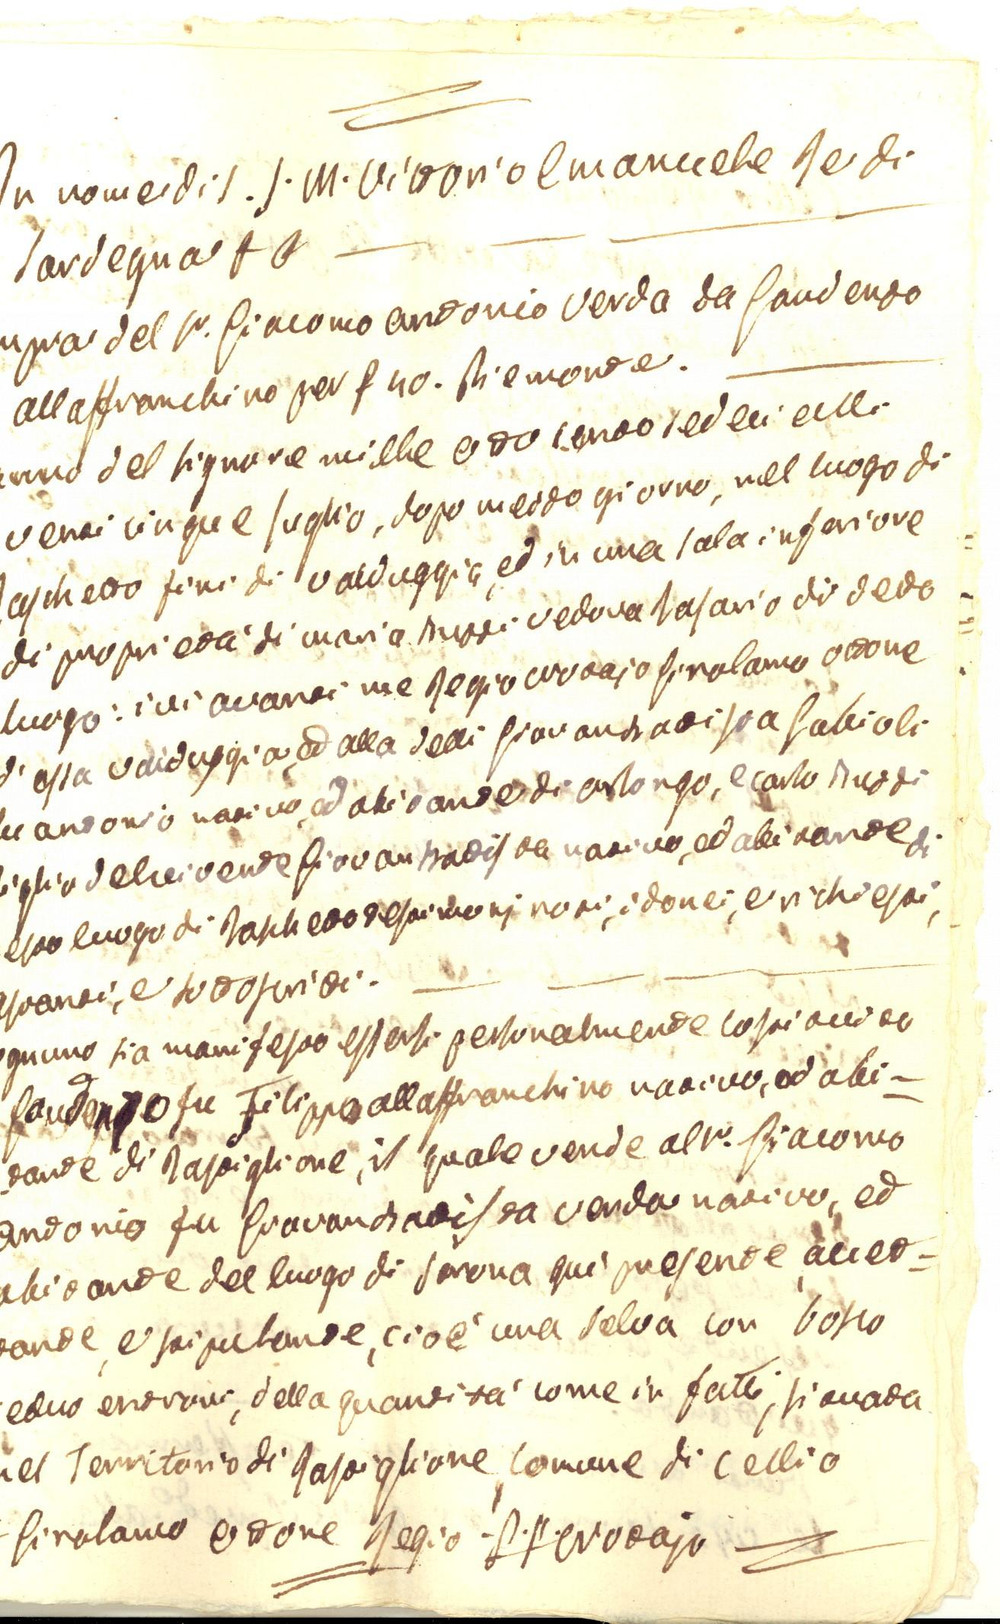 In nome di S. S. M. Vittorio Emanuele Re di
Sardegna
mpra del Sr. Giacomo Antonio Verda da Gaudenzo
allaffranchino per £ 40. Piemonte.
anno del Signore mille otto cento sedeci alli
venti cinque luglio, dopo mezzo giorno, nel luogo di
Raschetto fini di Valduggia, ed in una sala inferiore
di proprietà di Maria vedova di detto
luogo: ivi avanti me Regio Girolamo ottone
d'essa Valduggia, ed alla delli Giovan battista
fu antonio nativo, ed abitante di orlongo, e carlo
figlio del vivente Giovan battista nativo, ed abitante di
esso luogo di Raschetto testimonj noti, idonei, e richiesti,
astanti, e sottoscritti.
ognuno sia manifesto essersi personalmente costituito
Gaudenzo fu Filippo allaffranchino nativo, ed abi-
tante di Rastiglione, il quale vende al Sr. Giacomo
Antonio fu Giovan battista verda nativo, ed
abitante del luogo di Sorona qui presente, accet-
tante, e stipulante, cioè una selva con bosco
ceduo entrovi, della quantità come in fatti, situata
nel Territorio di Rastiglione, Comune di Cellio
Girolamo ottone Regio